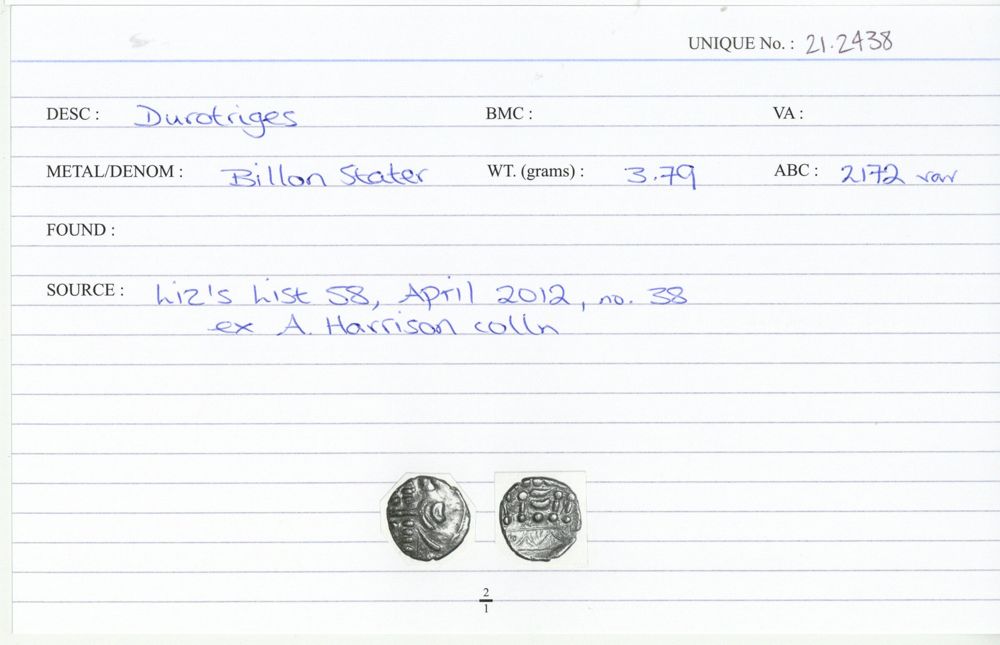 UNIQUE No. : 21.2438
DESC : Durotriges BMC : VA :
METAL/DENOM : Billon Stater WT. (grams) : 3.79 ABC : 2172 var
FOUND :
SOURCE : Liz's List 58, April 2012, no. 38
ex A. Harrison colln
2
1